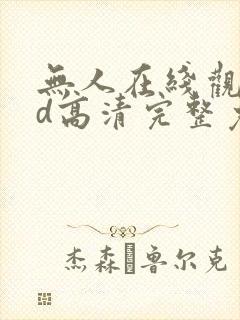 無人在綫觀
d高清完整
杰森 魯尔克